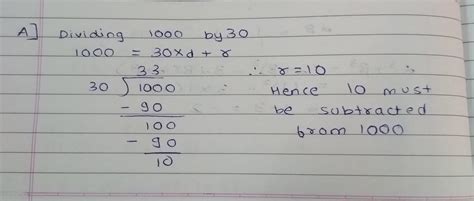 A] Dividing 1000 by 30
1000 = 30xd + r
33 ∴ r = 10
30 ) 1000 ∴ Hence 10 must
- 90 be subtracted
100 from 1000
- 90
10